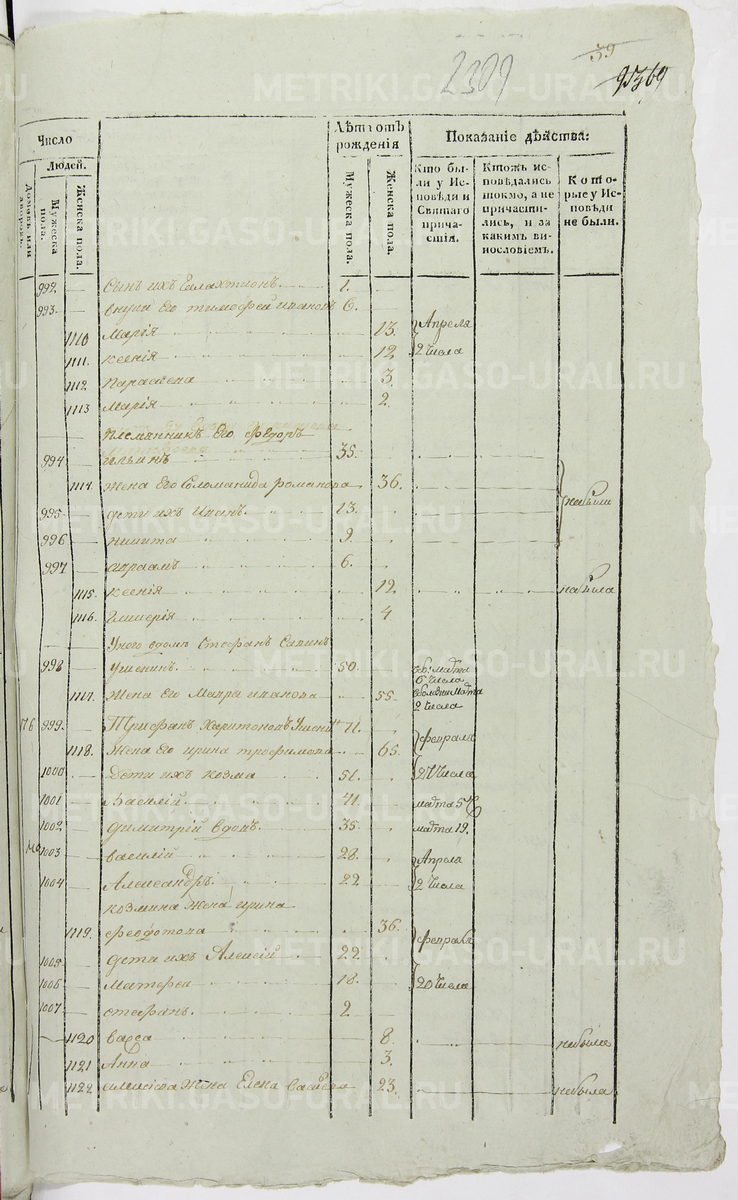 59
2309
9369
Число
Людей.
Домовъ или дворовъ.
Мужеска пола.
Женска пола.
Лѣтъ отъ рожденія
Мужеска пола.
Женска пола.
Показаніе дѣйства:
Кто бы-
ли у Ис-
повѣди и
Святаго
прича-
стія.
Ктожъ ис-
повѣдались
токмо, а не
причасти-
лись, и за
какимъ ви-
нословіемъ.
Кото-
рые у Ис-
повѣди
не были.
992. сынъ ихъ Галахтионъ 1.
993. внуки Его тимофей ивановъ 6.
1110 Марія 13. Апреля
1111. ксенія 12. 2 числа
1112. параскева 3.
1113 Марія 2.
племянникъ Его Федоръ
994 ильинъ 35.
1114. жена Его Соломанида романова 36.
995 дети ихъ Иванъ 13. небыли
996 никита 9
997 авраамъ 6.
1115. ксения 12. небыла
1116. гликерія 4
Унего вдомѣ Стефанъ Савинъ
998 50. марта
6 числа
1117. жена Его Мавра иванова 55. марта
2 числа
76 999. Трифанъ Харитоновъ 71.
1118. жена Его ирина трофимова 65. февраля
1000 Дети ихъ козма 51. 27 числа
1001 Василій 41. марта 5
1002 димитрій вдовъ 35 марта 19.
1003 василій 28. Апреля
1004 Александръ 22 2 числа
козмина жена ирина
1119. федотова 36. февраля
1005 дети ихъ Алексій 22
1006 матфей 18. 20 числа
1007. стефанъ 2
1120 васса 8. небыла
1121 Анна 3.
1122 алексіева жена Елена 23. небыла
METRIKI.GASO-URAL.RU